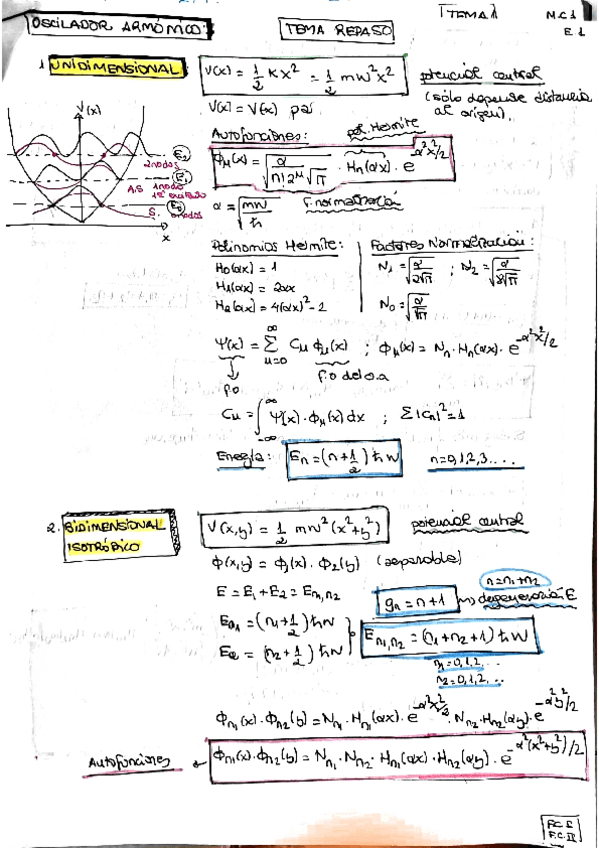 TEMA 1 M.C.1
OSCILADOR ARMÓNICO: TEMA REPASO E.1
1. UNIDIMENSIONAL V(x) = 1/2 Kx² = 1/2 mw²x² potencial central
(sólo depende distancia al origen).
V(x) = V(x) par
V(x)
E2
2 nodos
E1
A.S 1 nodo
1er excitado
E0
S. 0 nodos
x
Autofunciones: pol. Hermite
Φn(x) = √(α/(n! 2ⁿ √π)) · Hn(αx) · e^(-α²x²/2)
α = √(mw/ħ) f. normalización
Polinomios Hermite: Factores Normalización:
H0(αx) = 1 N1 = √(α/(2√π)) ; N2 = √(α/(8√π))
H1(αx) = 2αx
H2(αx) = 4(αx)² - 2 N0 = √(α/√π)
Ψ(x) = Σ(n=0, ∞) Cn Φn(x) ; Φn(x) = Nn · Hn(αx) · e^(-α²x²/2)
f.o f.o del o.a
Cn = ∫(-∞, ∞) Ψ(x) · Φn(x) dx ; Σ|Cn|² = 1
Energía: En = (n + 1/2) ħw n = 0,1,2,3....
2. BIDIMENSIONAL ISOTRÓPICO V(x,y) = 1/2 mw² (x² + y²) potencial central
Φ(x,y) = Φ1(x) · Φ2(y) (separable)
n = n1 + n2
E = E1 + E2 = En1,n2 gn = n + 1 → degeneración E
E1 = (n1 + 1/2) ħw
E2 = (n2 + 1/2) ħw En1,n2 = (n1 + n2 + 1) ħw
n1 = 0,1,2,...
n2 = 0,1,2,...
Φn1(x) · Φn2(y) = Nn1 · Hn1(αx) · e^(-α²x²/2) · Nn2 · Hn2(αy) · e^(-α²y²/2)
Autofunciones ← Φn1(x) · Φn2(y) = Nn1 · Nn2 · Hn1(αx) · Hn2(αy) · e^(-α²(x²+y²)/2)
F.C.II